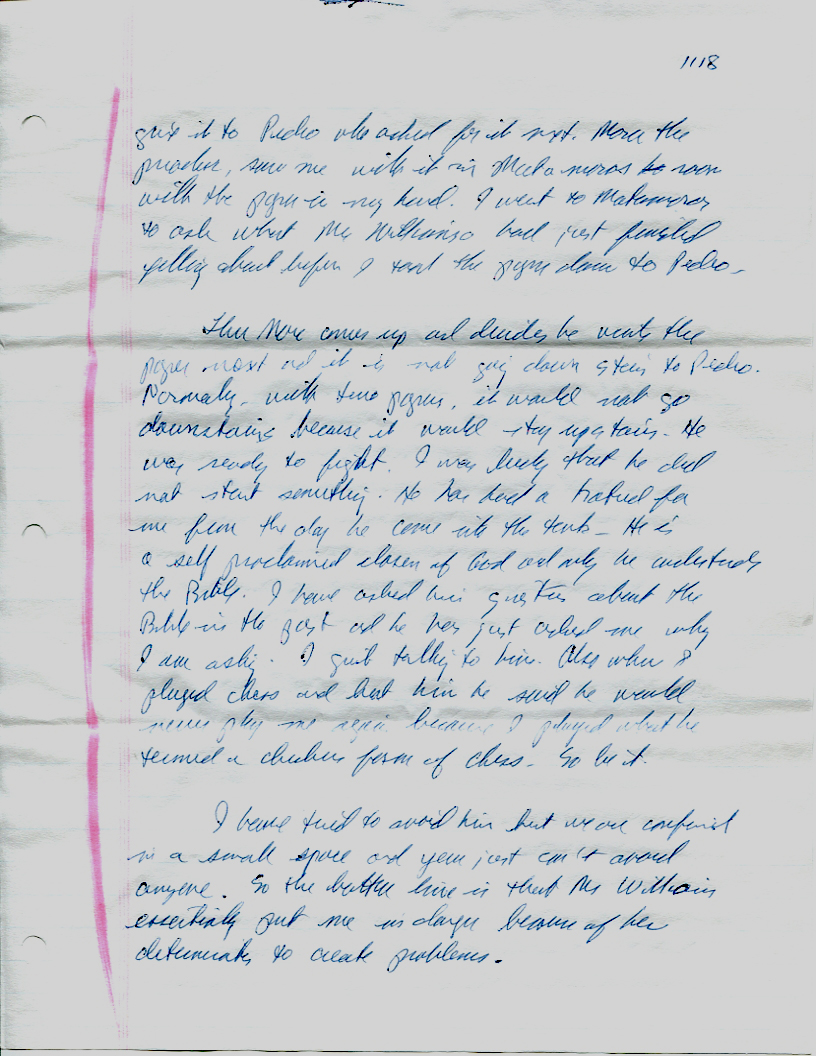 1118
give it to Pedro who asked for it next. More the
preacher, saw me with it in Matamoros room
with the paper in my hand. I went to Matamoros
to ask what Ms Williams had just finished
yelling about before I sent the paper down to Pedro.
Then More comes up and decides he wants the
paper next and it is not going down stairs to Pedro.
Normally, with two papers, it would not go
downstairs because it would stay upstairs. He
was ready to fight. I was lucky that he did
not start something. He has had a hatred for
me from the day he came into the tank. He is
a self proclaimed chosen of God and only he understands
the Bible. I have asked him questions about the
Bible in the past and he has just asked me why
I am asking. I quit talking to him. Also when I
played chess and beat him he said he would
never play me again because I played what he
termed a form of chess. So be it.
I have tried to avoid him but we are confined
in a small space and you just can't avoid
anyone. So the bottom line is that Ms Williams
essentially put me in danger because of her
determination to create problems.